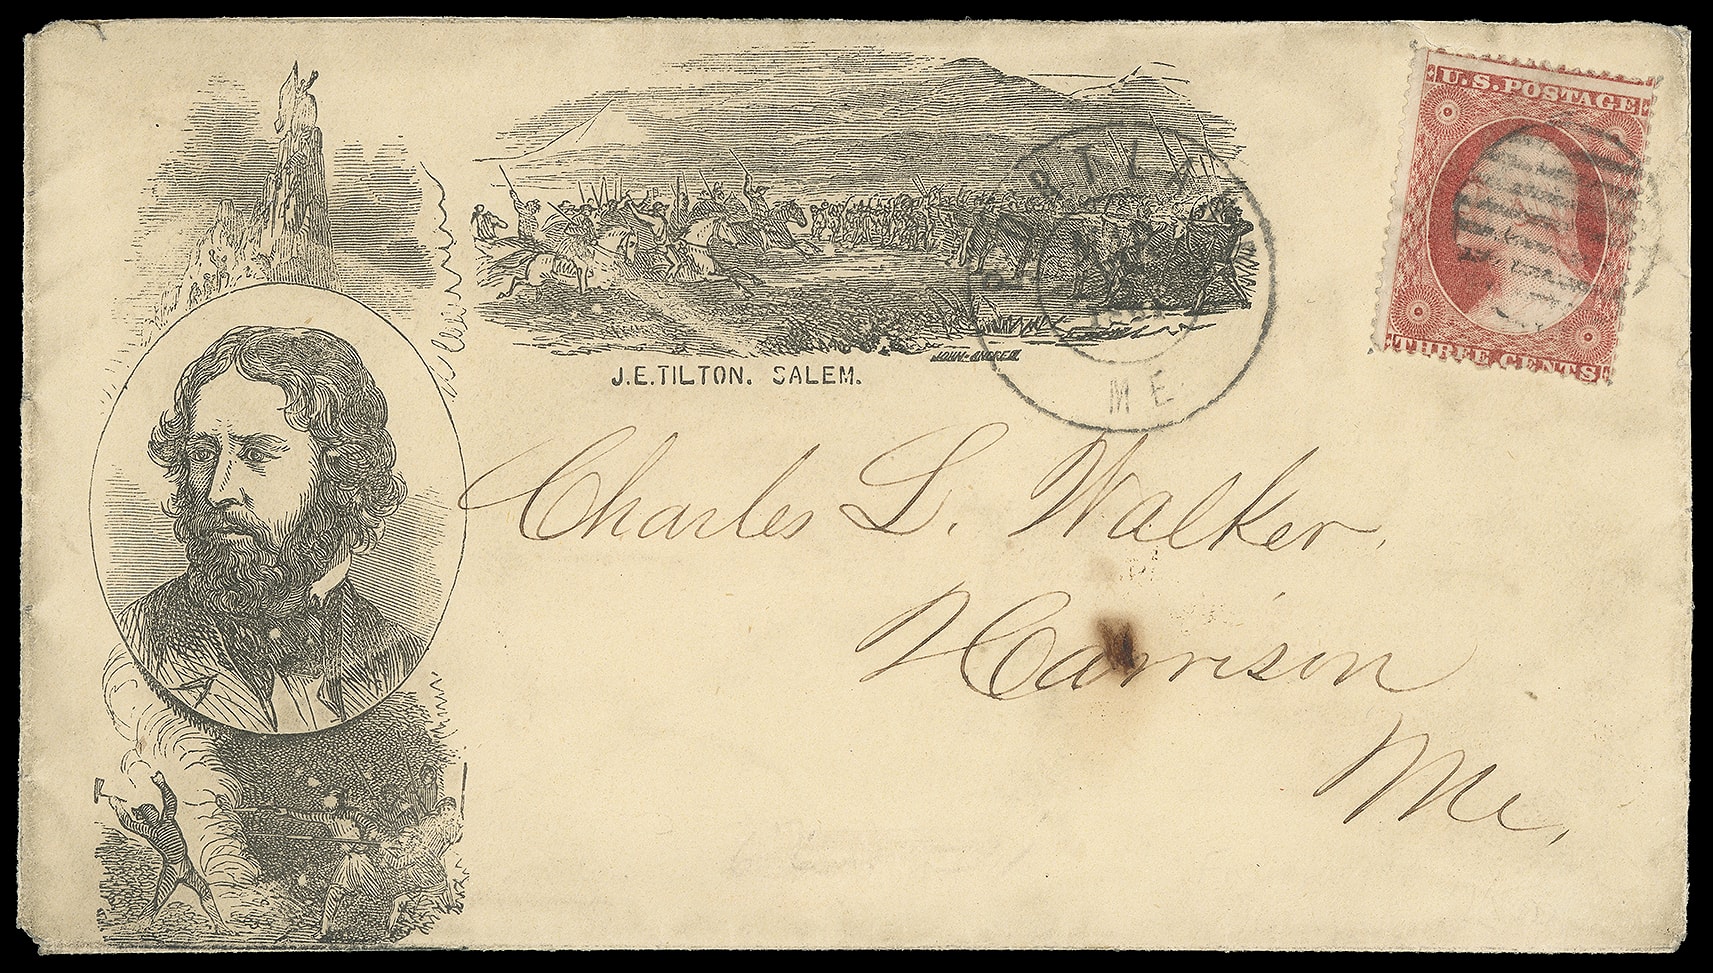 U.S. POSTAGE
THREE CENTS
J.E. TILTON. SALEM.
JOHN-ANDREW
ME.
Charles L. Walker,
Harrison
Me,